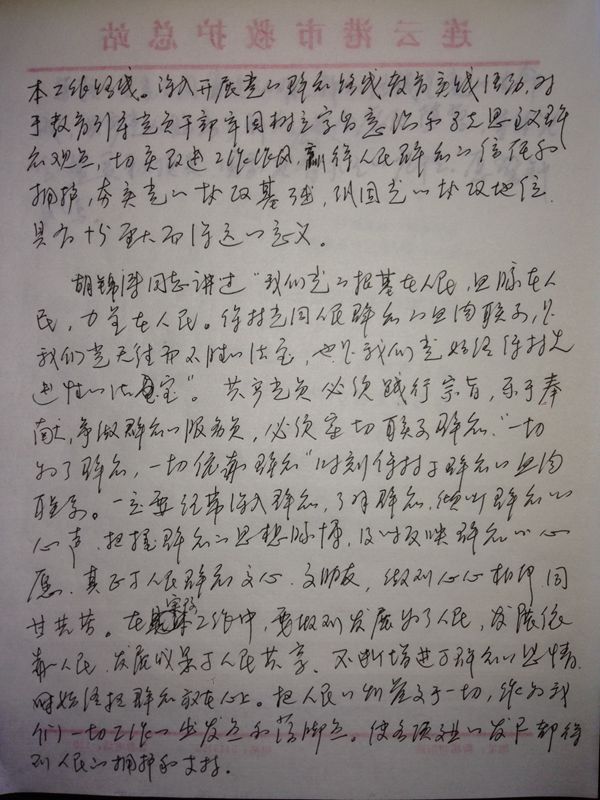 连云港市救护总站
本工作路线。深入开展党的群众路线教育实践活动,对
于教育引导党员干部牢固树立宗旨意识和马克思主义群
众观点,切实改进工作作风,赢得人民群众的信任和
拥护,夯实党的执政基础,巩固党的执政地位,
具有十分重大而深远的意义。
胡锦涛同志讲过"我们党的根基在人民,血脉在人
民,力量在人民。保持党同人民群众的血肉联系,是
我们党无往而不胜的法宝,也是我们党始终保持先
进性的法宝"。共产党员必须践行宗旨,乐于奉
献,争做群众的服务员,必须密切联系群众,"一切
为了群众,一切依靠群众"时刻保持与群众的血肉
联系。一定要经常深入群众,了解群众,倾听群众的
心声,把握群众的思想脉搏,及时反映群众的心
愿,真正与人民群众交心、交朋友,做到心心相印、同
甘共苦。在实际工作中,要做到发展为了人民,发展依
靠人民,发展成果与人民共享,不断增进与群众的思想感情,
时始终把群众放在心上。把人民的利益高于一切,作为我
们一切工作的出发点和落脚点。使各项事业的发展都得
到人民的拥护和支持。